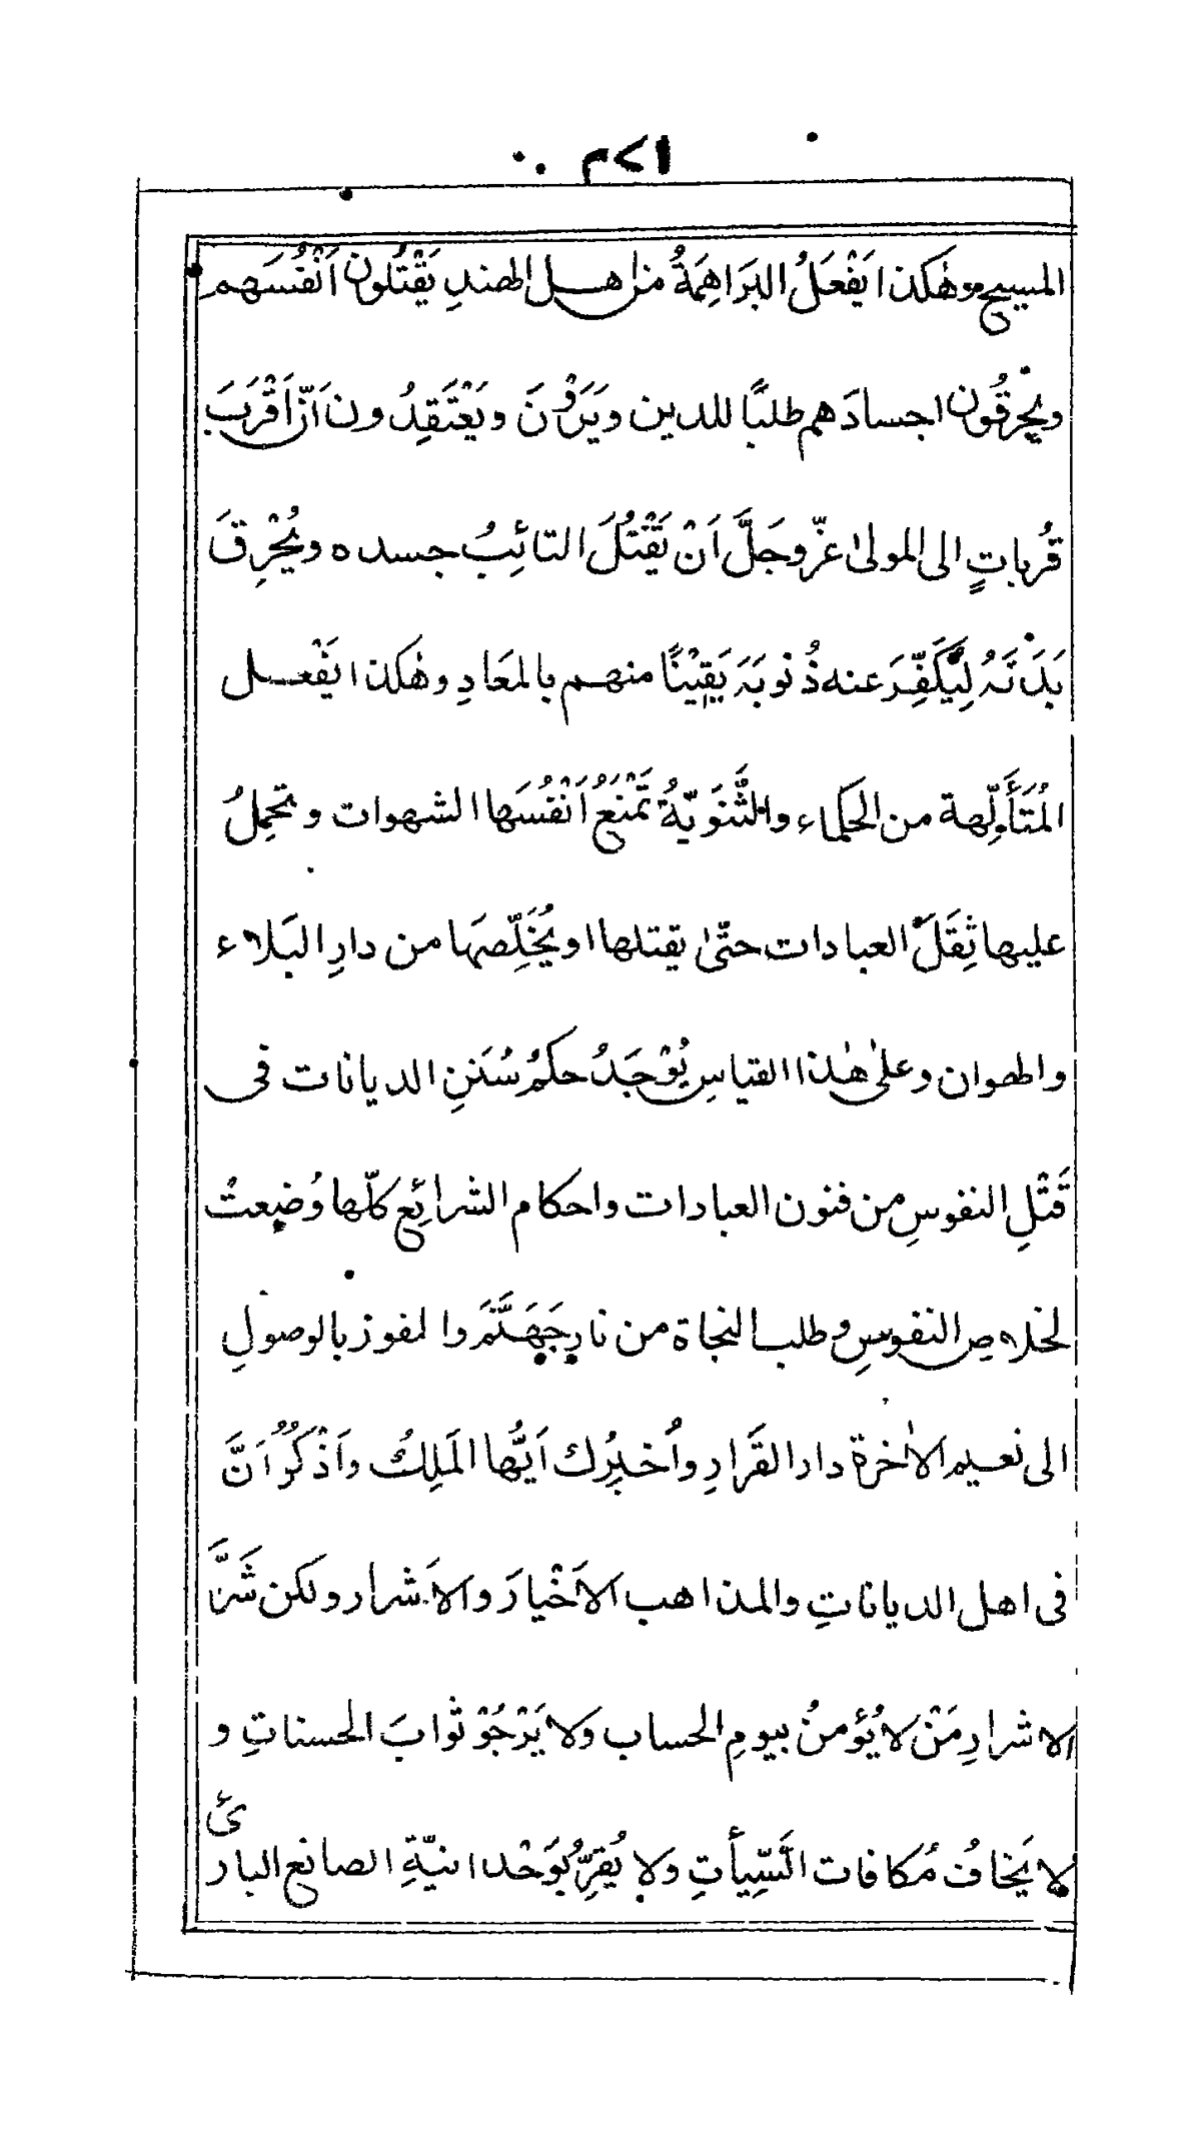 المسيح وهٰكذا يَفْعَلُ البَرَاهِمَةُ من اهل الهندِ يَقْتُلون اَنْفُسَهم
ويُحْرِقُون اجسادَهم طلبًا للدين ويَرَوْنَ ويَعْتَقِدُون اَنّ اَقْرَبَ
قُرباتٍ الى المولىٰ عزّوجَلَّ اَنْ يَقْتُلَ التائِبُ جسده ويُحْرِقَ
بَدَنَهُ لِيُكَفِّرَ عنه ذُنوبَهَ يَقِيْنًا منهم بالمعَادِ وهٰكذا يَفْعل
المُتَأَلِّهة من الحكماء والثَّنَوِيّةُ تَمْنَعُ اَنْفُسَها الشهوات وتحمِلُ
عليها ثِقَلَ العبادات حتّىٰ يقتلها او يُخَلِّصَها من دارِ البَلاء
والهوان وعلىٰ هٰذا القياسِ يُوْجَدُ حكمُ سُنَنِ الديانات فى
قَتْلِ النفوسِ من فنون العبادات واحكام الشرائِع كلّها وُضِعتْ
لخلاصِ النفوسِ وطلب النجاة من نارِ جَهَنَّمَ والفوز بالوصولِ
الى نعيم الاٰخرة دار القَرارِ وأُخبِرُك اَيُّها المَلِكُ واَذْكُرُ اَنَّ
فى اهل الدياناتِ والمذاهب الاَخْيارَ والاَشرار ولكن شَرَّ
الاشرارِ مَنْ لا يُؤمنُ بيومِ الحساب ولا يَرْجُوْ ثوابَ الحسناتِ و
لا يَخافُ مُكافات السَّيِّأتِ ولا يُقِرُّ بِوَحْدانيّةِ الصانع البارئ